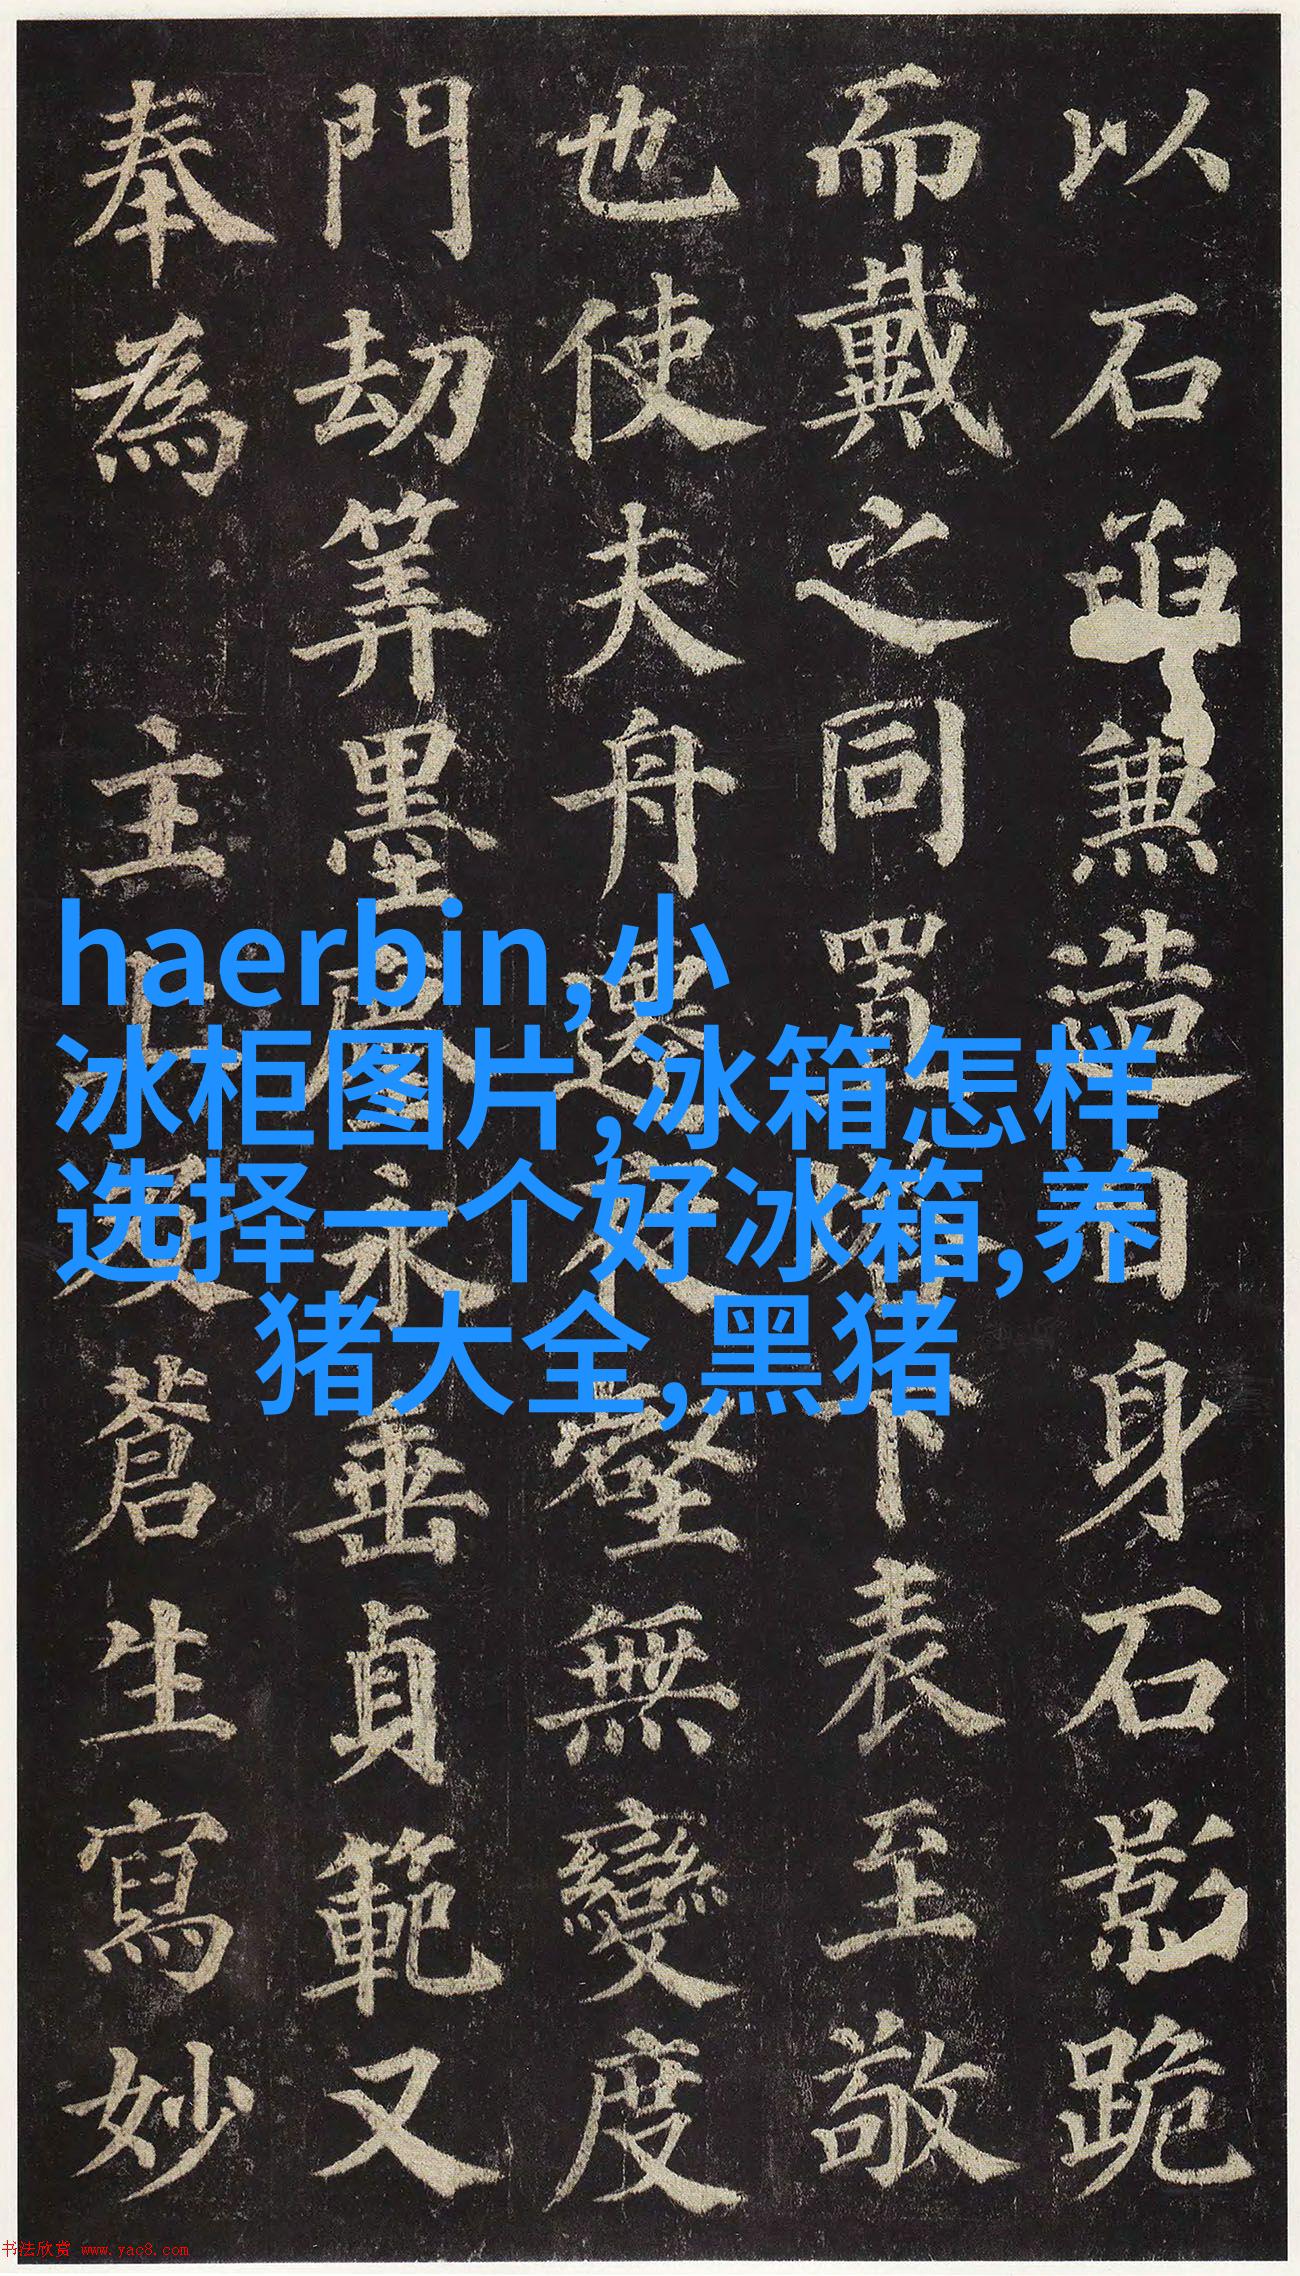 以石函兼造自身石影跪
而戴之同置塔下表至敬
也使夫舟遷夜壑無變度
門劫筭墨塵永垂貞範又
奉為主上及蒼生寫妙
haerbin,小
冰柜图片,冰箱怎样
选择一个好冰箱,养
猪大全,黑猪
书法欣赏 www.yac8.com